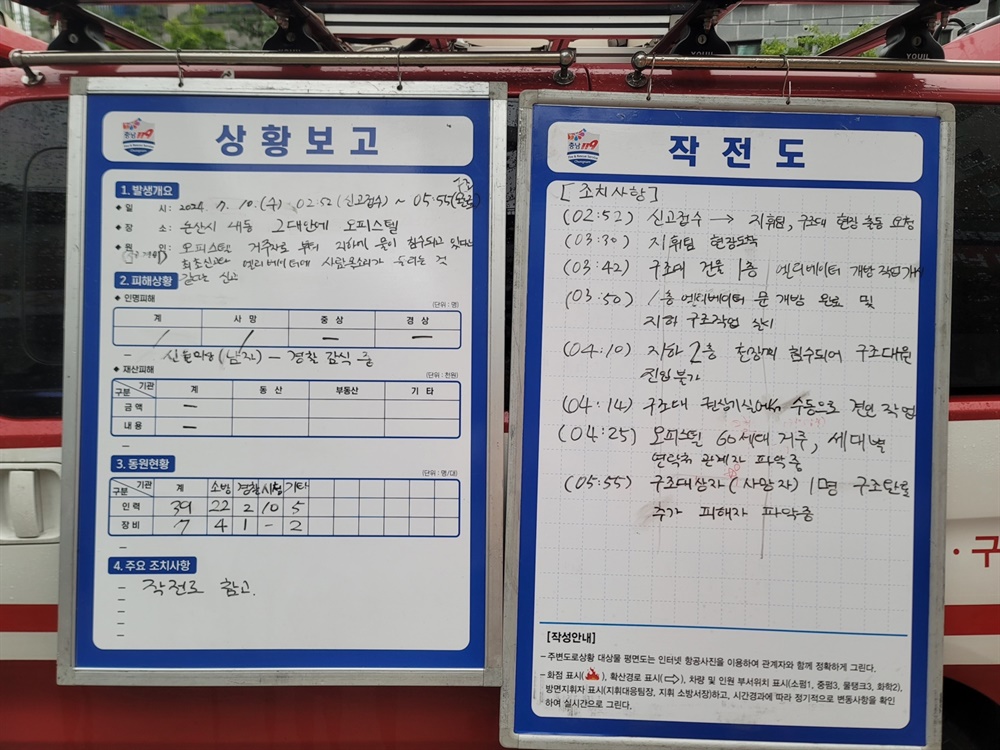 충남 119
상 황 보 고
1. 발생개요
구조
◆ 일 시 : 2024. 7. 10. (수) 02:52 (신고접수) ~ 05:55(완료)
◆ 장 소 : 논산시 내동 그대안에 오피스텔
◆ 원 인 : 오피스텔 거주자로 부터 지하에 물이 침수되고 있다는
최초신고 엘리베이터에 사람목소리가 들리는 것
같다는 신고
2. 피해상황
◆ 인명피해
(단위 : 명)
계 사 망 중 상 경 상
/ / — —
— 신원미상(남자) — 경찰 감식 중
◆ 재산피해
(단위 : 천원)
구분 기관 계 동 산 부동산 기 타
금 액 —
내 용 —
—
3. 동원현황
(단위 : 명/대)
구분 기관 계 소방 경찰 시청 기타
인 력 39 22 2 10 5
장 비 7 4 1 - 2
—
4. 주요 조치사항
— 작전도 참고.
—
—
—
—
충남 119
작 전 도
[조치사항]
(02:52) 신고접수 → 지휘팀, 구조대 현장 출동 요청
(03:30) 지휘팀 현장도착
(03:42) 구조대 건물 1층 엘리베이터 개방작업개시
(03:50) 1층 엘리베이터 문 개방 완료 및
지하 구조작업 실시
(04:10) 지하 2층 천장까지 침수되어 구조대원
진입불가
(04:14) 구조대 권상기실에서 수동으로 견인 작업
(04:25) 오피스텔 60세대 거주, 세대별
연락처 관계자 파악중
(05:55) 구조대상자(사망자) 1명 구조완료
추가 피해자 파악중
[작성안내]
– 주변도로상황 대상물 평면도는 인터넷 항공사진을 이용하여 관계자와 함께 정확하게 그린다.
– 화점 표시( ), 확산경로 표시(⇨), 차량 및 인원 부서위치 표시(소펌1, 중펌3, 물탱크3, 화학2).
방면지휘자 표시(지휘대응팀장, 지휘 소방서장)하고, 시간경과에 따라 정기적으로 변동사항을 확인
하여 실시간으로 그린다.
· 구